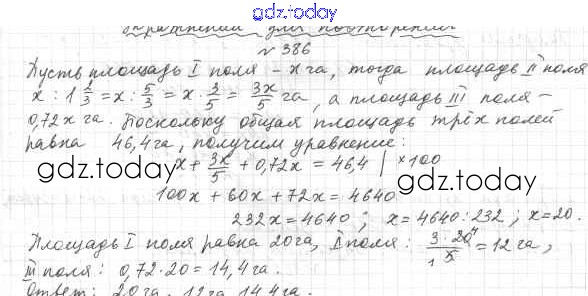 gdz.today
Упражнения для повторения
№ 386
Пусть площадь I поля – x га, тогда площадь II поля
x : 1 2/3 = x : 5/3 = x · 3/5 = 3x/5 га, а площадь III поля –
0,72x га. Поскольку общая площадь трёх полей
равна 46,4 га, получим уравнение:
x + 3x/5 + 0,72x = 46,4 | ×100
gdz.today
gdz.today
100x + 60x + 72x = 4640
232x = 4640 ; x = 4640 : 232 ; x = 20.
Площадь I поля равна 20 га, II поля : 3·20/5 = 12 га,
III поля : 0,72·20 = 14,4 га.
Ответ: 20 га, 12 га, 14,4 га.
gdz.today